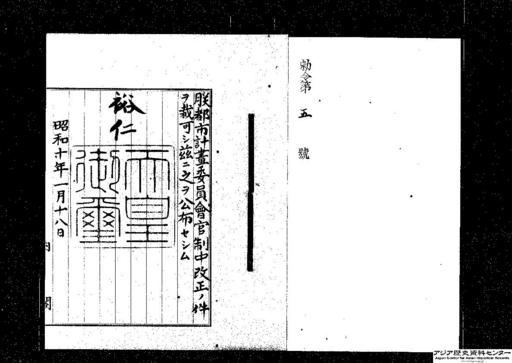 勅令第五號
朕都市計畫委員會官制中改正ノ件
ヲ裁可シ茲ニ之ヲ公布セシム
裕仁
天皇御璽
昭和十年一月十八日
内閣
アジア歴史資料センター
Japan Center for Asian Historical Records